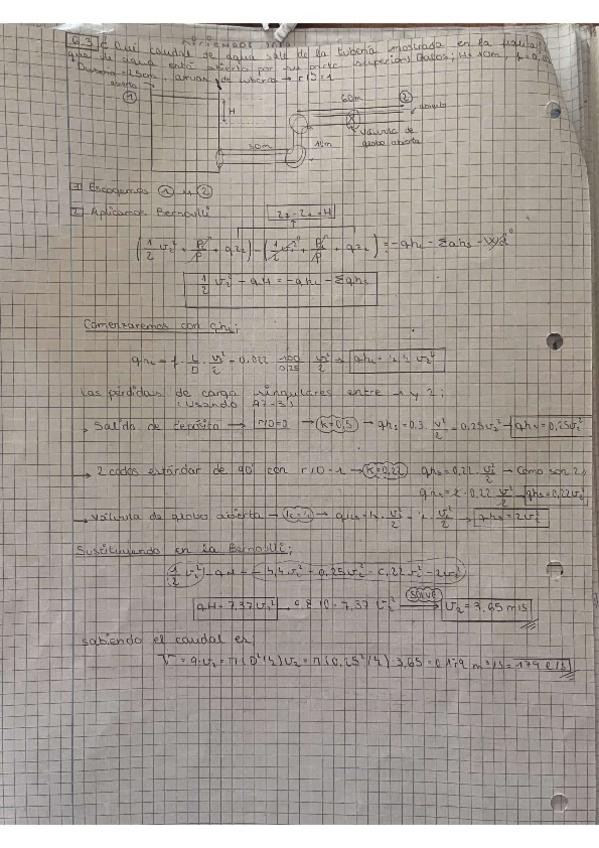 6.3 ¿ Qué caudal de agua sale de la tubería mostrada en la figura
de agua está abierto por su parte superior? Datos; H=10m; f=0,0
Dtubería=25cm, de tubería → r/D=1
1
60m
2
H
30m
10m
válvula de
globo abierta
1 Escogemos 1 y 2
2 Aplicamos Bernoulli
(1/2 v₂² + p/ρ + gz₂) - (1/2 v₁² + p/ρ + gz₁) = -ghL - Σghs - Wd⁰
1/2 v₂² - gH = -ghL - Σghs
Comenzaremos con ghL;
ghL = f · L/D · v₂²/2 = 0,022 100/0,25 v₂²/2 → ghL = 4,4 v₂²
Las pérdidas de carga singulares entre 1 y 2;
(usando A7-3)
→ Salida de depósito → r/D=0 → K=0,5 → ghs = 0.5 · v₂²/2 = 0,25v₂² → ghs=0,25v₂²
→ 2 codos estándar de 90º con r/D=1 → K=0,22 ghs=0,22 · v₂²/2 → Como son 2;
ghs = 2 · 0,22 v₂²/2 → ghs=0,22v₂²
→ válvula de globo abierta → K=4 → ghs=K · v₂²/2 = 4 · v₂²/2 → ghs=2v₂²
Sustituyendo en la Bernoulli;
1/2 v₂² - gH = -4,4v₂² - 0,25v₂² - 0,22v₂² - 2v₂²
gH=7,37v₂² 9.8·10=7,37 v₂² SOLVE → v₂=3,65m/s
sabiendo el caudal es;
V = a·v₂ = π(D²/4)v₂ = π(0,25²/4) 3,65=0,179 m³/s=179 l/s